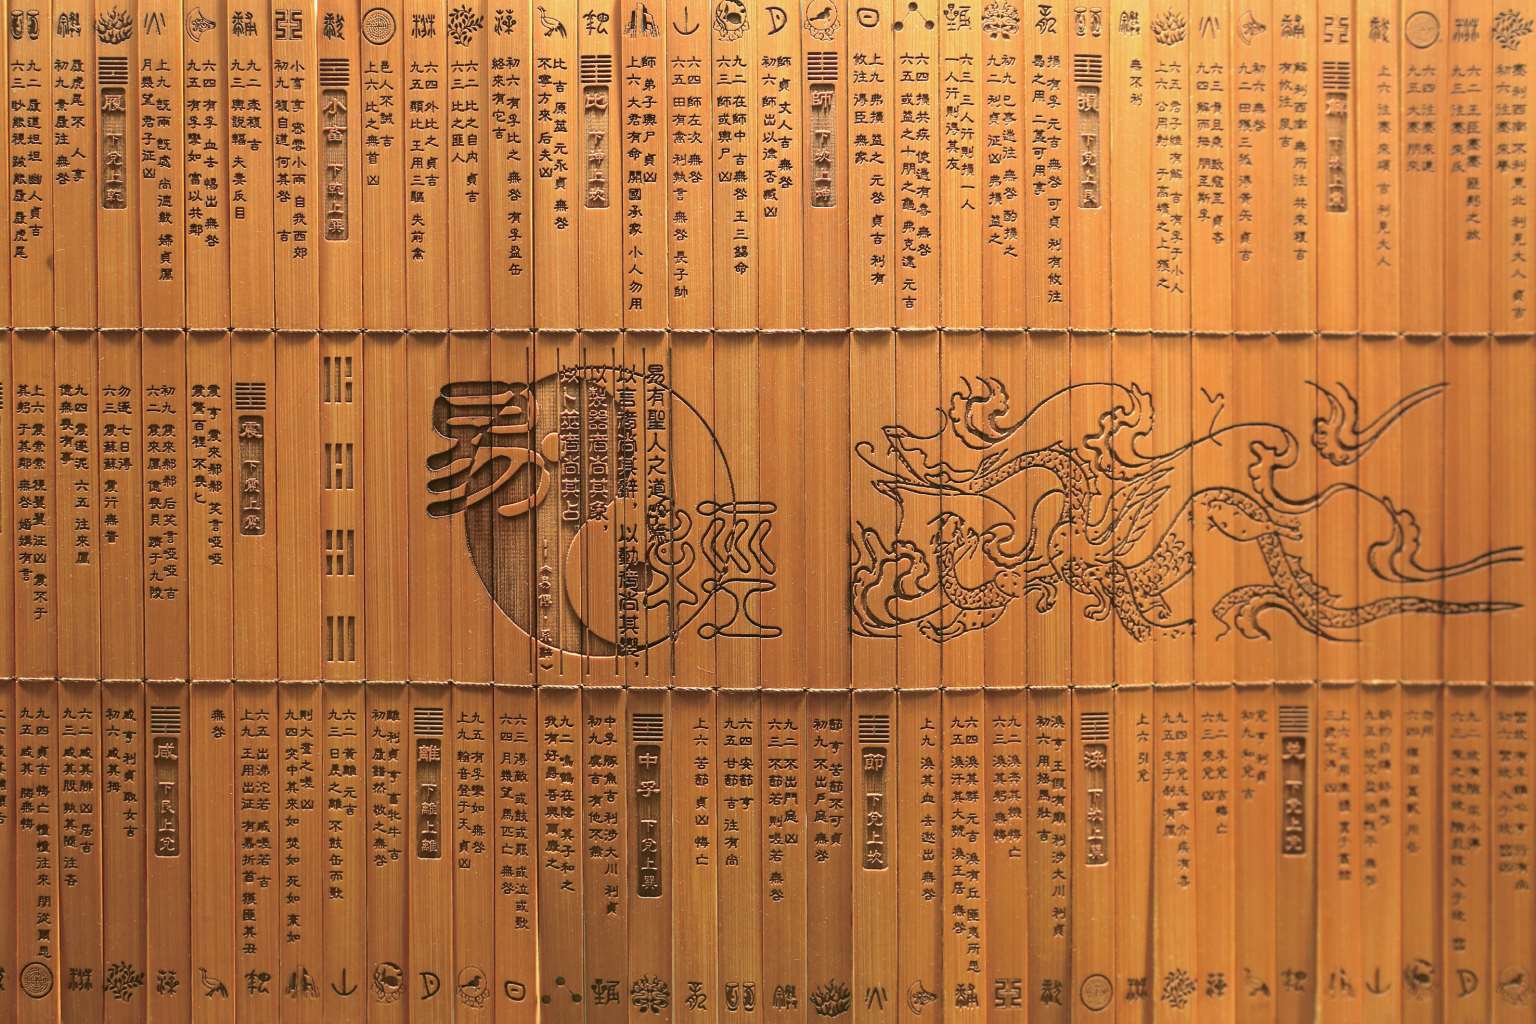 蹇 利西南 不利東北 利見大人 貞吉
初六 往蹇來譽
六二 王臣蹇蹇 匪躬之故
九三 往蹇來反
六四 往蹇來連
九五 大蹇 朋來
上六 往蹇來碩 吉 利見大人
解 利西南 無所往 其來復吉
有攸往 夙吉
初六 無咎
九二 田獲三狐 得黃矢 貞吉
六三 負且乘 致寇至 貞吝
九四 解而拇 朋至斯孚
六五 君子維有解 吉 有孚于小人
上六 公用射 于高墉之上 獲之
無不利
損 下兌上艮
損 有孚 元吉 無咎 可貞 利有攸往
曷之用 二簋可用享
初九 已事遄往 無咎 酌損之
九二 利貞 征凶 弗損益之
六三 三人行則損一人
一人行則得其友
六四 損其疾 使遄有喜 無咎
六五 或益之 十朋之龜 弗克違 元吉
上九 弗損益之 無咎 貞吉 利有
攸往 得臣無家
師 下坎上坤
師 貞 丈人吉 無咎
初六 師出以律 否臧凶
九二 在師中 吉 無咎 王三錫命
六三 師或輿尸 凶
六四 師左次 無咎
六五 田有禽 利執言 無咎 長子帥
師 弟子輿尸 貞凶
上六 大君有命 開國承家 小人勿用
比 下坤上坎
比 吉 原筮 元永貞 無咎
不寧方來 后夫凶
初六 有孚比之 無咎 有孚盈缶
終來有它吉
六二 比之自內 貞吉
六三 比之匪人
六四 外比之 貞吉
九五 顯比 王用三驅 失前禽
邑人不誡 吉
上六 比之無首 凶
小畜 下乾上巽
小畜 亨 密雲不雨 自我西郊
初九 復自道 何其咎 吉
九二 牽復 吉
九三 輿說輻 夫妻反目
六四 有孚 血去惕出 無咎
九五 有孚攣如 富以其鄰
上九 既雨既處 尚德載 婦貞厲
月幾望 君子征凶
履 下兌上乾
履虎尾 不人 亨
初九 素履往 無咎
九二 履道坦坦 幽人貞吉
六三 眇能視 跛能履 履虎尾
易經
易有聖人之道
以言者尚其辭，以動者尚其變，
以製器者尚其象，
以卜筮者尚其占
——《易傳·系辭》
震 下震上震
震 亨 震來虩虩 笑言啞啞
震驚百裡 不喪匕
初九 震來虩虩 后笑言啞啞 吉
六二 震來厲 億喪貝 躋于九陵
勿逐 七日得
六三 震蘇蘇 震行無眚
九四 震遂泥 六五 震往來厲
億無喪有事
上六 震索索 視矍矍 征凶 震不于
其躬 于其鄰 無咎 婚媾有言
兌 下兌上兌
兌 亨 利貞
初九 和兌 吉
九二 孚兌 吉 悔亡
六三 來兌 凶
九四 商兌未寧 介疾有喜
九五 孚于剝 有厲
上六 引兌
渙 下坎上巽
渙 亨 王假有廟 利涉大川 利貞
初六 用拯馬壯 吉
九二 渙奔其機 悔亡
六三 渙其躬 無悔
六四 渙其群 元吉 渙有丘 匪夷所思
九五 渙汗其大號 渙王居 無咎
上九 渙其血 去逖出 無咎
節 下兌上坎
節 亨 苦節不可貞
初九 不出戶庭 無咎
九二 不出門庭 凶
六三 不節若 則嗟若 無咎
六四 安節 亨
九五 甘節 吉 往有尚
上六 苦節 貞凶 悔亡
中孚 下兌上巽
中孚 豚魚吉 利涉大川 利貞
初九 虞吉 有他不燕
九二 鳴鶴在陰 其子和之
我有好爵 吾與爾靡之
六三 得敵 或鼓或罷 或泣或歌
六四 月幾望 馬匹亡 無咎
九五 有孚攣如 無咎
上九 翰音登于天 貞凶
離 下離上離
離 利貞 亨 畜牝牛 吉
初九 履錯然 敬之 無咎
六二 黃離 元吉
九三 日昃之離 不鼓缶而歌
則大耋之嗟 凶
九四 突如其來如 焚如 死如 棄如
六五 出涕沱若 戚嗟若 吉
上九 王用出征 有嘉折首 獲匪其丑
無咎
咸 下艮上兌
咸 亨 利貞 取女吉
初六 咸其拇
六二 咸其腓 凶 居吉
九三 咸其股 執其隨 往吝
九四 貞吉 悔亡 憧憧往來 朋從爾思
九五 咸其脢 無悔